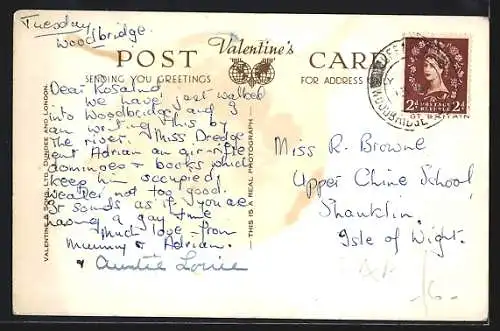 Tuesday
Woodbridge.
POST Valentine's CARD
SENDING YOU GREETINGS
FOR ADDRESS
Dear Rosalind
we have just walked
into Woodbridge and I
am writing this by
the river. Miss Dredge
sent Adrian an air-rifle
dominoes & books which
keep him occupied,
weather not too good.
It sounds as if you are
having a gay time
Much love from
Mummy & Adrian.
& Auntie Lorrie
VALENTINE & SONS, LTD., DUNDEE AND LONDON.
— THIS IS A REAL PHOTOGRAPH —
WOODBRIDGE
POSTAGE
REVENUE
2d 2d
BRITAIN
Miss R. Browne
Upper Chine School,
Shanklin,
Isle of Wight.